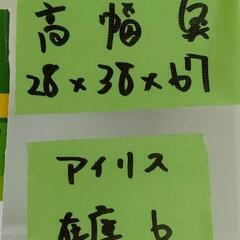 高 幅 奥
28×38×67
アイリス
在庫 6